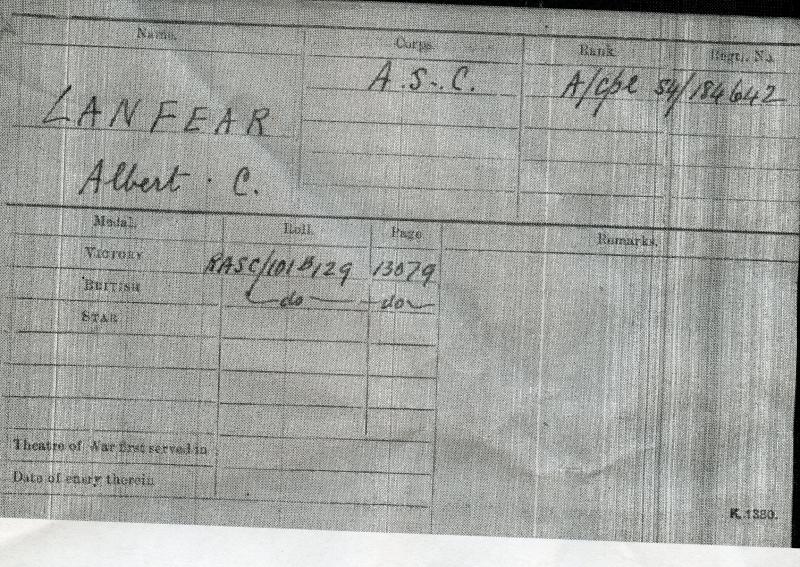 Name. Corps. Rank. Regtl. No.
LANFEAR A.S.C. A/Cpl S4/184642
Albert. C.
Medal. Roll. Page Remarks.
VICTORY RASC/101B129 13079
BRITISH do do
STAR
Theatre of War first served in
Date of entry therein
K. 1380.